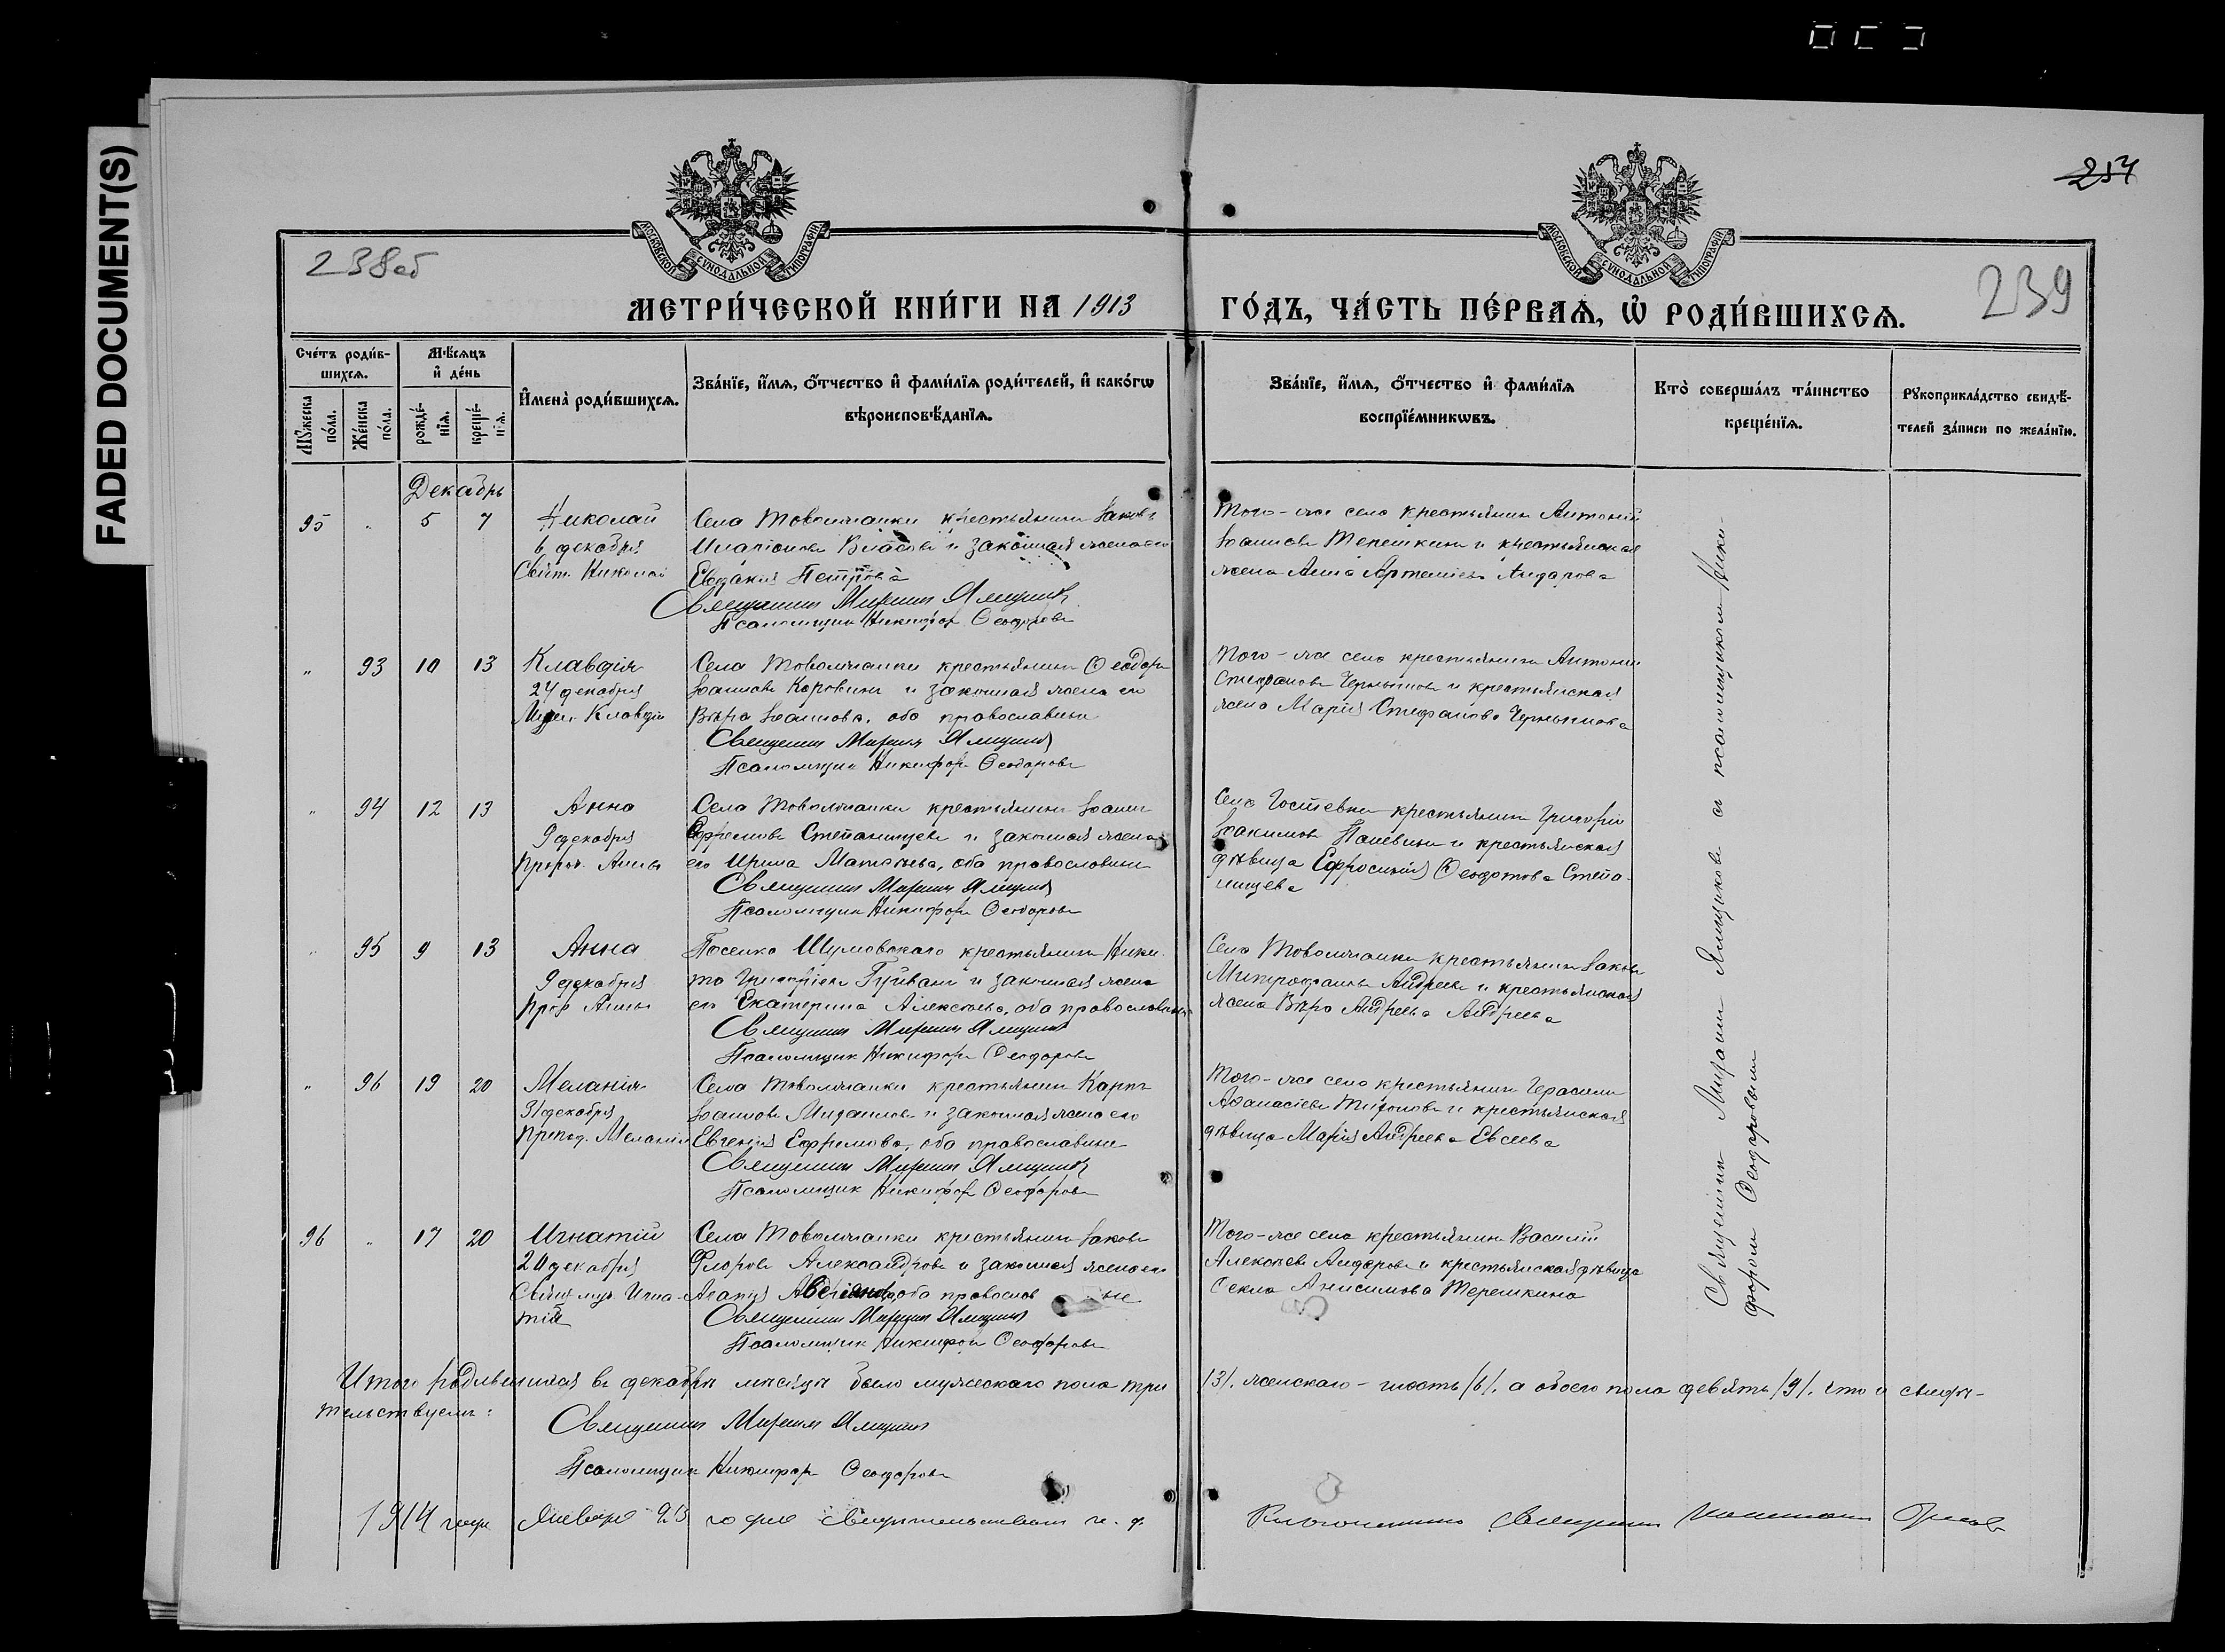 FADED DOCUMENT(S)
254
238об
239
МОСКОВСКОЙ СѴНОДАЛЬНОЙ ТИПОГРАФІИ
МОСКОВСКОЙ СѴНОДАЛЬНОЙ ТИПОГРАФІИ
МЕТРИ́ЧЕСКОЙ КНИ́ГИ НА 1913 ГО́ДЪ, ЧА́СТЬ ПЕ́РВАѦ, Ѽ РОДИ́ВШИХСѦ.
Сче́тъ роди́в-
шихсѧ.
Мꙋ́жеска по́ла.
Же́нска по́ла.
Мѣ́сѧцъ
и҆ де́нь
рожде́-
нїѧ.
креще́-
нїѧ.
И҆мена̀ роди́вшихсѧ.
Зва́нїе, и҆́мѧ, ѻ҆́тчество и҆ фами́лїѧ роди́телей, и҆ како́гѡ
вѣроисповѣ́данїѧ.
Зва́нїе, и҆́мѧ, ѻ҆́тчество и҆ фами́лїѧ
воспрїе́мникѡвъ.
Кто̀ соверша́лъ та́инство
креще́нїѧ.
Рꙋкоприкла́дство свидѣ́-
телей за́писи по жела́нїю.
Декабрь
95 " 5 7 Николай
6 декабря
Свят. Николай
Села Товолжанки крестьянин Іаковъ
Иларіоновъ Власовъ и законная жена его
Евдокія Петрова
Священникъ Миронъ Ямщиковъ
Псаломщикъ Никифоръ Ѳеодоровъ
Того-же села крестьянинъ Антоній
Іоанновъ Терешкинъ и крестьянская
жена Анна Артеміева Айдарова
" 93 10 13 Клавдія
24 декабря
Клавдія
Села Товолжанки крестьянинъ Ѳеодоръ
Іоанновъ Коровинъ и законная жена его
Вѣра Іоаннова, оба православные
Священникъ Миронъ Ямщиковъ
Псаломщикъ Никифоръ Ѳеодоровъ
Того-же села крестьянинъ Антоній
Стефановъ Чернышовъ и крестьянская
жена Марія Стефанова Чернышова
" 94 12 13 Анна
9 декабря
Пророч. Анны
Села Товолжанки крестьянинъ Іоаннъ
Ефремовъ Степанищевъ и законная жена
его Ирина Матѳѣева, оба православные
Священникъ Миронъ Ямщиковъ
Псаломщикъ Никифоръ Ѳеодоровъ
Села Гостевки крестьянинъ Григорій
Іоакимовъ и крестьянская
дѣвица Ефросинія Ѳеодотова Степа-
нищева
" 95 9 13 Анна
9 декабря
Прор. Анны
Поселка Шумовскаго крестьянинъ Ники-
та Григоріевъ и законная жена
его Екатерина Алексѣева, оба православные
Священникъ Миронъ Ямщиковъ
Псаломщикъ Никифоръ Ѳеодоровъ
Села Товолжанки крестьянинъ Іаковъ
Митрофановъ Андреевъ и крестьянская
жена Вѣра Андреева Андреева
" 96 19 20 Меланія
31 декабря
Препод. Меланіи
Села Товолжанки крестьянинъ Карпъ
Іоанновъ Михайловъ и законная жена его
Евгенія Ефремова, оба православные
Священникъ Миронъ Ямщиковъ
Псаломщикъ Никифоръ Ѳеодоровъ
Того-же села крестьянинъ Герасимъ
Аѳанасіевъ Тихоновъ и крестьянская
дѣвица Марія Андреева Евсеева
96 " 17 20 Игнатій
20 декабря
Свящ. муч. Игна-
тій
Села Товолжанки крестьянинъ Іаковъ
Флоровъ Александровъ и законная жена его
Агапія, оба православные
Священникъ Миронъ Ямщиковъ
Псаломщикъ Никифоръ Ѳеодоровъ
Того-же села крестьянинъ Василій
Алексѣевъ Айдаровъ и крестьянская дѣвица
Ѳекла Анисимова Терешкина
Священникъ Миронъ Ямщиковъ съ псаломщикомъ Ники-
форомъ Ѳеодоровымъ
Итого родившихся въ декабрѣ мѣсяцѣ было мужескаго пола три /3/, женскаго - шесть /6/, а обоего пола девять /9/, что и свидѣ-
тельствуемъ:
Священникъ Миронъ Ямщиковъ
Псаломщикъ Никифоръ Ѳеодоровъ
1914 года Января го дня свидѣтельствовалъ и. д. Благочиннаго священникъ